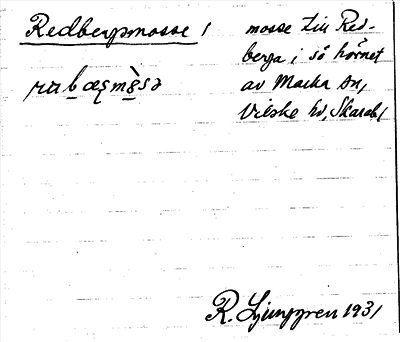 Redbergmosse /
mosse till Red-
berga i sö hörnet
av Marka sn,
Vilske hd, Skarab/
R. Ljunggren 1931